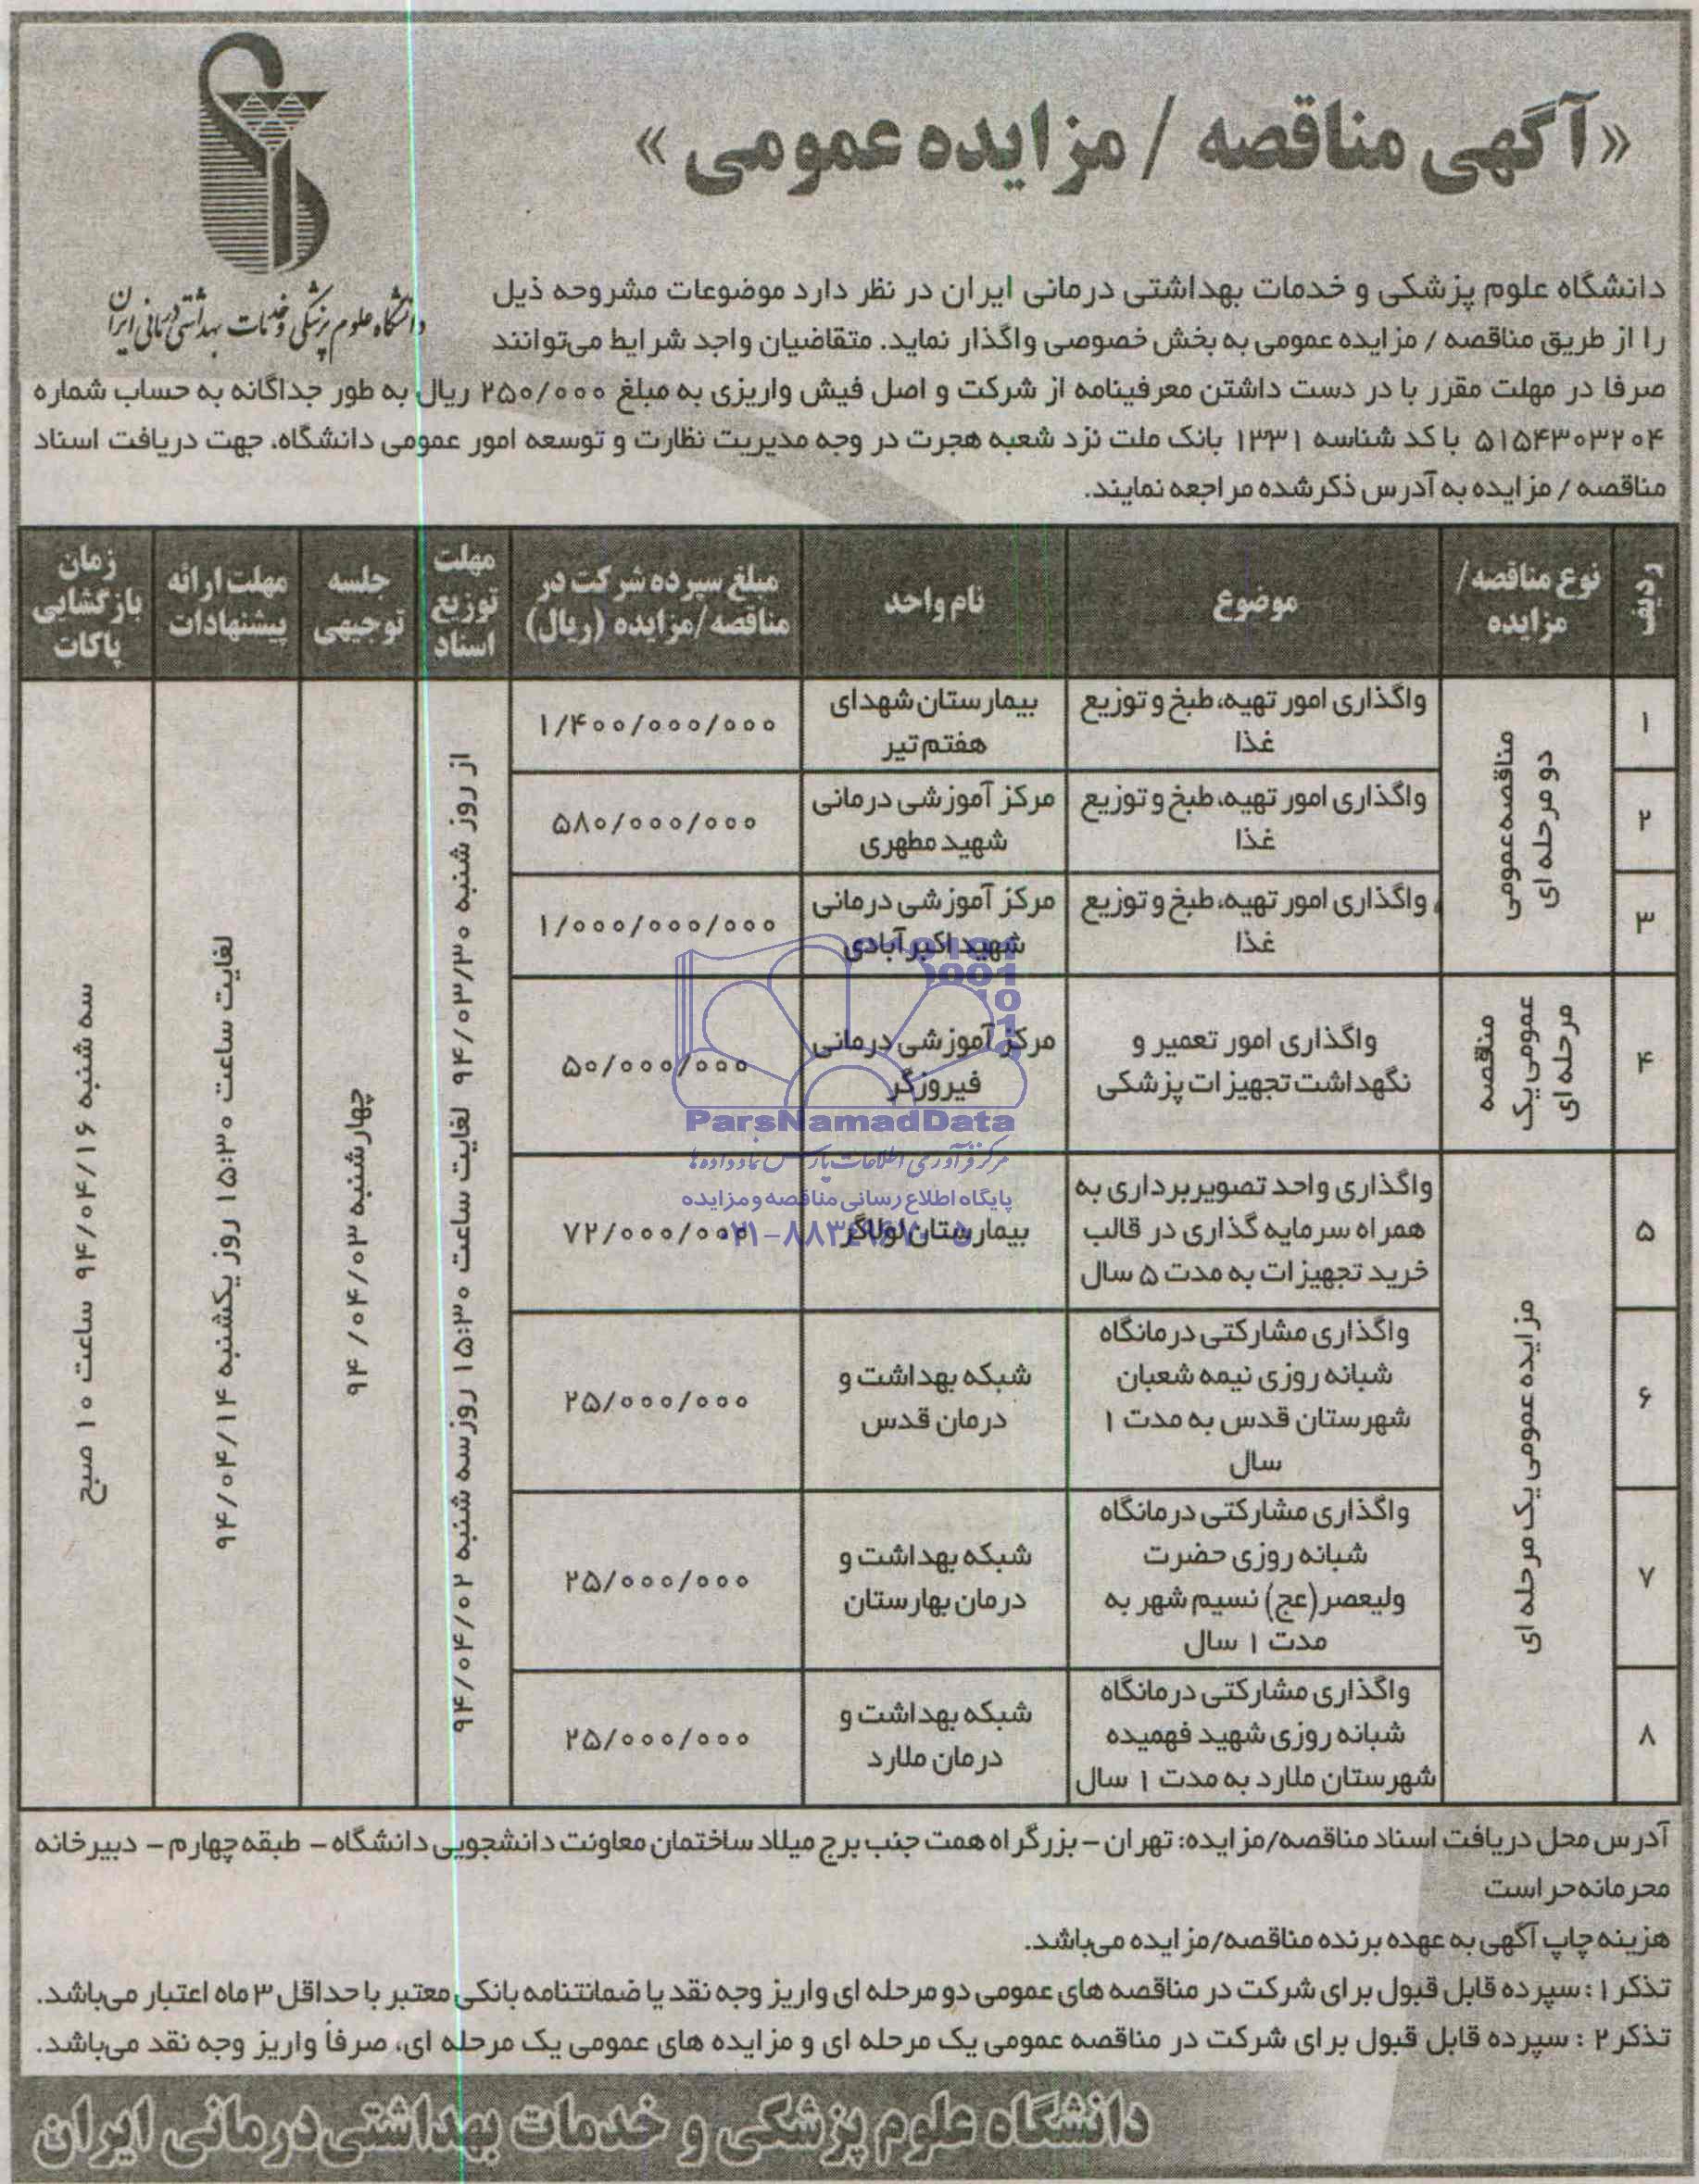 «آگهی مناقصه / مزایده عمومی»
دانشگاه علوم پزشکی و خدمات بهداشتی درمانی ایران
دانشگاه علوم پزشکی و خدمات بهداشتی درمانی ایران در نظر دارد موضوعات مشروحه ذیل
را از طریق مناقصه / مزایده عمومی به بخش خصوصی واگذار نماید. متقاضیان واجد شرایط می‌توانند
صرفا در مهلت مقرر با در دست داشتن معرفینامه از شرکت و اصل فیش واریزی به مبلغ ۲۵۰/۰۰۰ ریال به طور جداگانه به حساب شماره
۵۱۵۴۳۰۳۲۰۴ با کد شناسه ۱۳۳۱ بانک ملت نزد شعبه هجرت در وجه مدیریت نظارت و توسعه امور عمومی دانشگاه، جهت دریافت اسناد
مناقصه / مزایده به آدرس ذکر شده مراجعه نمایند.
ردیف
نوع مناقصه/
مزایده
موضوع
نام واحد
مبلغ سپرده شرکت در
مناقصه/مزایده (ریال)
مهلت
توزیع
اسناد
جلسه
توجیهی
مهلت ارائه
پیشنهادات
زمان
بازگشایی
پاکات
۱
مناقصه عمومی
دو مرحله ای
واگذاری امور تهیه، طبخ و توزیع
غذا
بیمارستان شهدای
هفتم تیر
۱/۴۰۰/۰۰۰/۰۰۰
از روز شنبه ۹۴/۰۳/۳۰ لغایت ساعت ۱۵:۳۰ روز سه شنبه ۹۴/۰۴/۰۲
چهارشنبه ۹۴/۰۴/۰۳
لغایت ساعت ۱۵:۳۰ روز یکشنبه ۹۴/۰۴/۱۴
سه شنبه ۹۴/۰۴/۱۶ ساعت ۱۰ صبح
۲
واگذاری امور تهیه، طبخ و توزیع
غذا
مرکز آموزشی درمانی
شهید مطهری
۵۸۰/۰۰۰/۰۰۰
۳
واگذاری امور تهیه، طبخ و توزیع
غذا
مرکز آموزشی درمانی
شهید اکبرآبادی
۱/۰۰۰/۰۰۰/۰۰۰
۴
مناقصه
عمومی یک
مرحله ای
واگذاری امور تعمیر و
نگهداشت تجهیزات پزشکی
مرکز آموزشی درمانی
فیروزگر
۵۰/۰۰۰/۰۰۰
ParsNamadData
مرکز فرآوری اطلاعات پارس نماد داده ها
پایگاه اطلاع رسانی مناقصه و مزایده
۵
مزایده عمومی یک مرحله ای
واگذاری واحد تصویربرداری به
همراه سرمایه گذاری در قالب
خرید تجهیزات به مدت ۵ سال
بیمارستان لولاگر
۷۲/۰۰۰/۰۰۰
۶
واگذاری مشارکتی درمانگاه
شبانه روزی نیمه شعبان
شهرستان قدس به مدت ۱
سال
شبکه بهداشت و
درمان قدس
۲۵/۰۰۰/۰۰۰
۷
واگذاری مشارکتی درمانگاه
شبانه روزی حضرت
ولیعصر(عج) نسیم شهر به
مدت ۱ سال
شبکه بهداشت و
درمان بهارستان
۲۵/۰۰۰/۰۰۰
۸
واگذاری مشارکتی درمانگاه
شبانه روزی شهید فهمیده
شهرستان ملارد به مدت ۱ سال
شبکه بهداشت و
درمان ملارد
۲۵/۰۰۰/۰۰۰
آدرس محل دریافت اسناد مناقصه/مزایده: تهران – بزرگراه همت جنب برج میلاد ساختمان معاونت دانشجویی دانشگاه – طبقه چهارم – دبیرخانه
محرمانه حراست
هزینه چاپ آگهی به عهده برنده مناقصه/مزایده می‌باشد.
تذکر ۱ : سپرده قابل قبول برای شرکت در مناقصه های عمومی دو مرحله ای واریز وجه نقد یا ضمانتنامه بانکی معتبر با حداقل ۳ ماه اعتبار می‌باشد.
تذکر ۲ : سپرده قابل قبول برای شرکت در مناقصه عمومی یک مرحله ای و مزایده های عمومی یک مرحله ای، صرفاً واریز وجه نقد می‌باشد.
دانشگاه علوم پزشکی و خدمات بهداشتی درمانی ایران